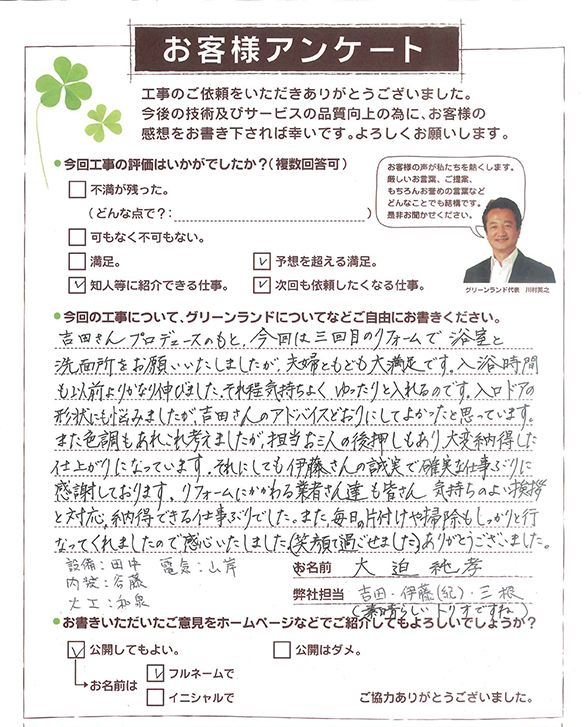 お客様アンケート
工事のご依頼をいただきありがとうございました。
今後の技術及びサービスの品質向上の為に、お客様の
感想をお書き下されば幸いです。よろしくお願いします。
●今回工事の評価はいかがでしたか？(複数回答可)
□不満が残った。
（どんな点で？：　）
□可もなく不可もない。
□満足。 ☑予想を超える満足。
☑知人等に紹介できる仕事。 ☑次回も依頼したくなる仕事。
お客様の声が私たちを熱くします。
厳しいお言葉、ご提案、
もちろんお誉めの言葉など
どんなことでも結構です。
是非お聞かせください。
グリーンランド代表 川村英之
●今回の工事について、グリーンランドについてなどご自由にお書きください。
吉田さんプロデュースのもと、今回は三回目のリフォームで浴室と
洗面所をお願いいたしましたが、夫婦ともども大満足です。入浴時間
も以前よりかなり伸びました。それ程気持ちよくゆったりと入れるのです。入口ドアの
形状にも悩みましたが、吉田さんのアドバイスどおりにしてよかったと思っています。
また色調もあれこれ考えましたが、担当お三人の後押しもあり、大変納得した
仕上がりになっています。それにしても伊藤さんの誠実で確実な仕事ぶりに
感謝しております。リフォームにかかわる業者さん達も皆さん気持ちのよい挨拶
と対応。納得できる仕事ぶりでした。また、毎日の片付けや掃除もしっかりと行
なってくれましたので感心いたしました。(笑顔で過ごせました)ありがとうございました。
設備：田中 電気：山岸
内装：谷藤
大工：和泉
お名前 大迫純孝
弊社担当 吉田・伊藤(紀)・三根
(素晴らしいトリオですね)
●お書きいただいたご意見をホームページなどでご紹介してもよろしいでしょうか？
☑公開してもよい。 □公開はダメ。
→お名前は ☑フルネームで
□イニシャルで
ご協力ありがとうございました。